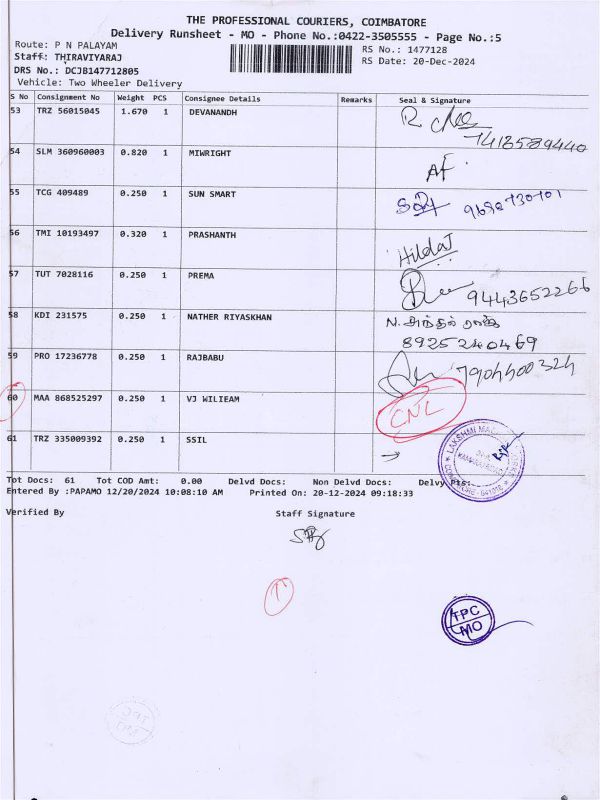 THE PROFESSIONAL COURIERS, COIMBATORE
Delivery Runsheet - MO - Phone No.:0422-3505555 - Page No.:5
Route: P N PALAYAM
RS No.: 1477128
Staff: THIRAVIYARAJ
RS Date: 20-Dec-2024
DRS No.: DCJB147712805
Vehicle: Two Wheeler Delivery
S No Consignment No Weight PCS Consignee Details Remarks Seal & Signature
53 TRZ 56015045 1.670 1 DEVANANDH
54 SLM 360960003 0.820 1 MIWRIGHT
AF
55 TCG 409489 0.250 1 SUN SMART
56 TMI 10193497 0.320 1 PRASHANTH
HildaJ
57 TUT 7028116 0.250 1 PREMA
9443652266
58 KDI 231575 0.250 1 NATHER RIYASKHAN
8925240469
59 PRO 17236778 0.250 1 RAJBABU
7904400324
60 MAA 868525297 0.250 1 VJ WILIEAM
CNL
61 TRZ 335009392 0.250 1 SSIL
LAKSHMI
Tot Docs: 61 Tot COD Amt: 0.00 Delvd Docs: Non Delvd Docs: Delvy Pts:
Entered By :PAPAMO 12/20/2024 10:08:10 AM Printed On: 20-12-2024 09:18:33
Verified By Staff Signature
TPC
MO